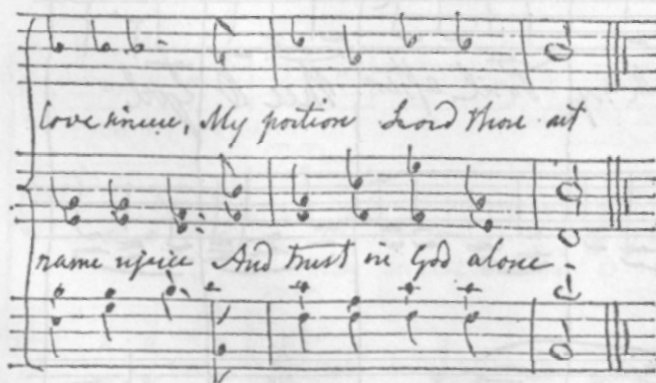 love sincere, My portion Lord thou art
name rejoice And trust in God alone.